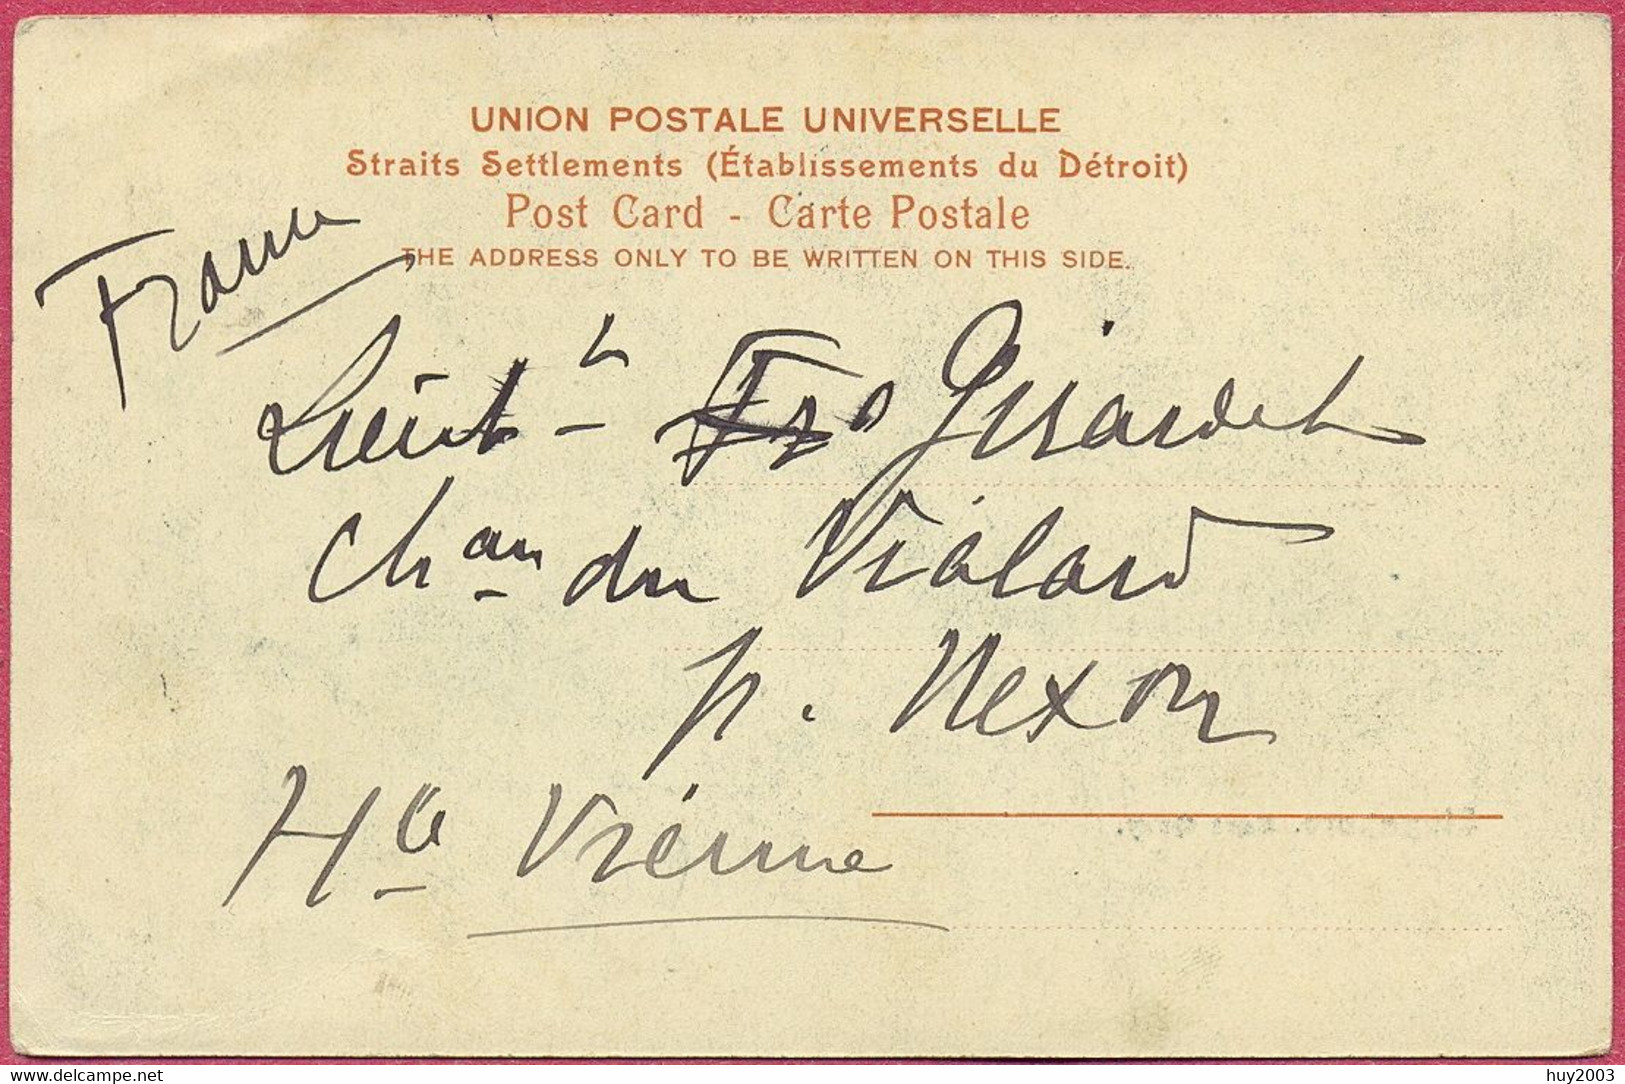 UNION POSTALE UNIVERSELLE
Straits Settlements (Établissements du Détroit)
Post Card - Carte Postale
THE ADDRESS ONLY TO BE WRITTEN ON THIS SIDE.
France
Lieut. Girardet
Chau du Vialard
p. Nexon
Hte Vienne
delcampe.net
huy2003